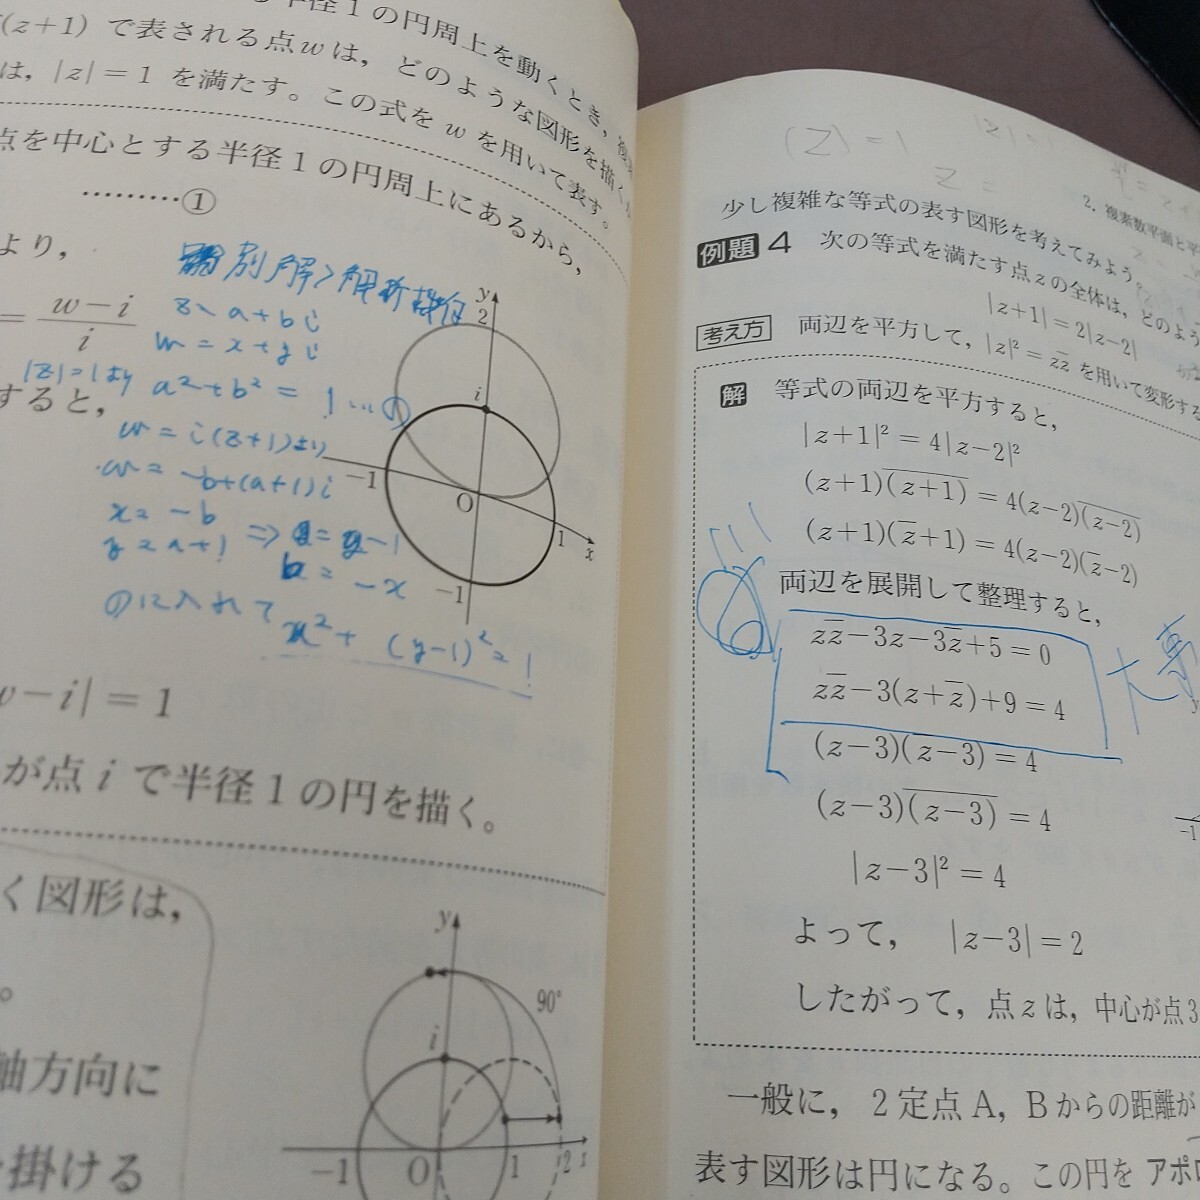 半径1の円周上を動くとき,
(z+1) で表される点wは, どのような図形を描く
は, |z|=1 を満たす。この式を w を用いて表す。
点を中心とする半径1の円周上にあるから,
………①
より,
= w−i / i
すると,
別解>解析
z = a+bi
w = x+yi
|z|=1より a²+b² = 1 …①
w = i(z+1)より
w = −b+(a+1)i
x = −b
y = a+1 ⇒ a = y−1
b = −x
①に入れて
x²+(y−1)²=1
y
2
i
−1
O
1
x
−1
w−i|=1
が点 i で半径1の円を描く。
く図形は,
。
軸方向に
掛ける
y
90°
i
−1
O
1
2
x
(Z)=1
|z|=
z =
2. 複素数平面と平
少し複雑な等式の表す図形を考えてみよう。
例題4 次の等式を満たす点zの全体は, どのよう
|z+1|=2|z−2|
考え方 両辺を平方して, |z|²=zz̄ を用いて変形する
解 等式の両辺を平方すると,
|z+1|²=4|z−2|²
(z+1)(\overline{z+1})=4(z−2)(\overline{z−2})
(z+1)(z̄+1)=4(z−2)(z̄−2)
両辺を展開して整理すると,
zz̄−3z−3z̄+5=0
zz̄−3(z+z̄)+9=4
(z−3)(z̄−3)=4
(z−3)(\overline{z−3})=4
|z−3|²=4
よって, |z−3|=2
したがって, 点zは, 中心が点3
−1
大事
一般に, 2定点A, Bからの距離が
表す図形は円になる。この円を アポロ